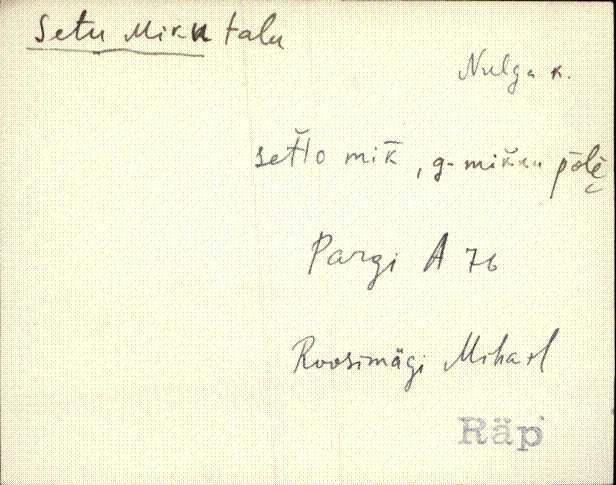 Setu Mikk talu
Nulga k.
set̆to mik̄, g. mik̆ku pōlè̬
Pargi A 76
Roosimägi Mihael
Räp